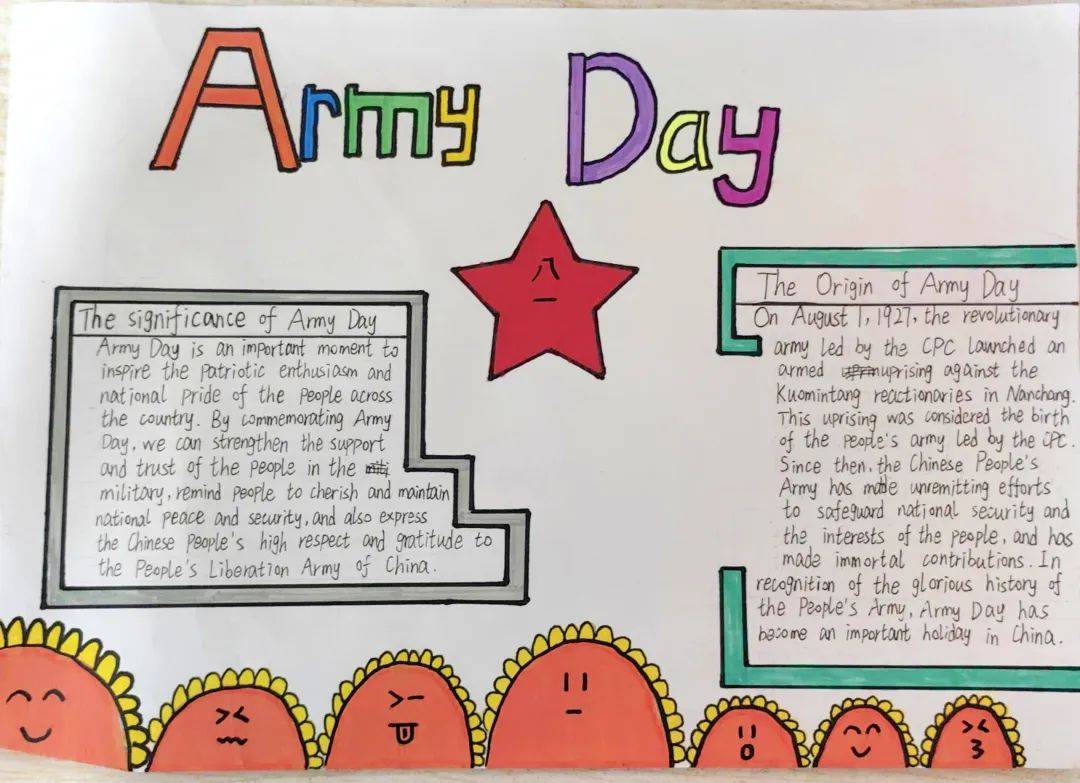 Army Day
八
一
The significance of Army Day
Army Day is an important moment to
inspire the patriotic enthusiasm and
national pride of the people across
the country. By commemorating Army
Day, we can strengthen the support
and trust of the people in the
military, remind people to cherish and maintain
national peace and security, and also express
the Chinese People's high respect and gratitude to
the People's Liberation Army of China.
The Origin of Army Day
On August 1, 1927, the revolutionary
army led by the CPC launched an
armed uprising against the
Kuomintang reactionaries in Nanchang.
This uprising was considered the birth
of the people's army led by the CPC.
Since then, the Chinese People's
Army has made unremitting efforts
to safeguard national security and
the interests of the people, and has
made immortal contributions. In
recognition of the glorious history of
the People's Army, Army Day has
become an important holiday in China.